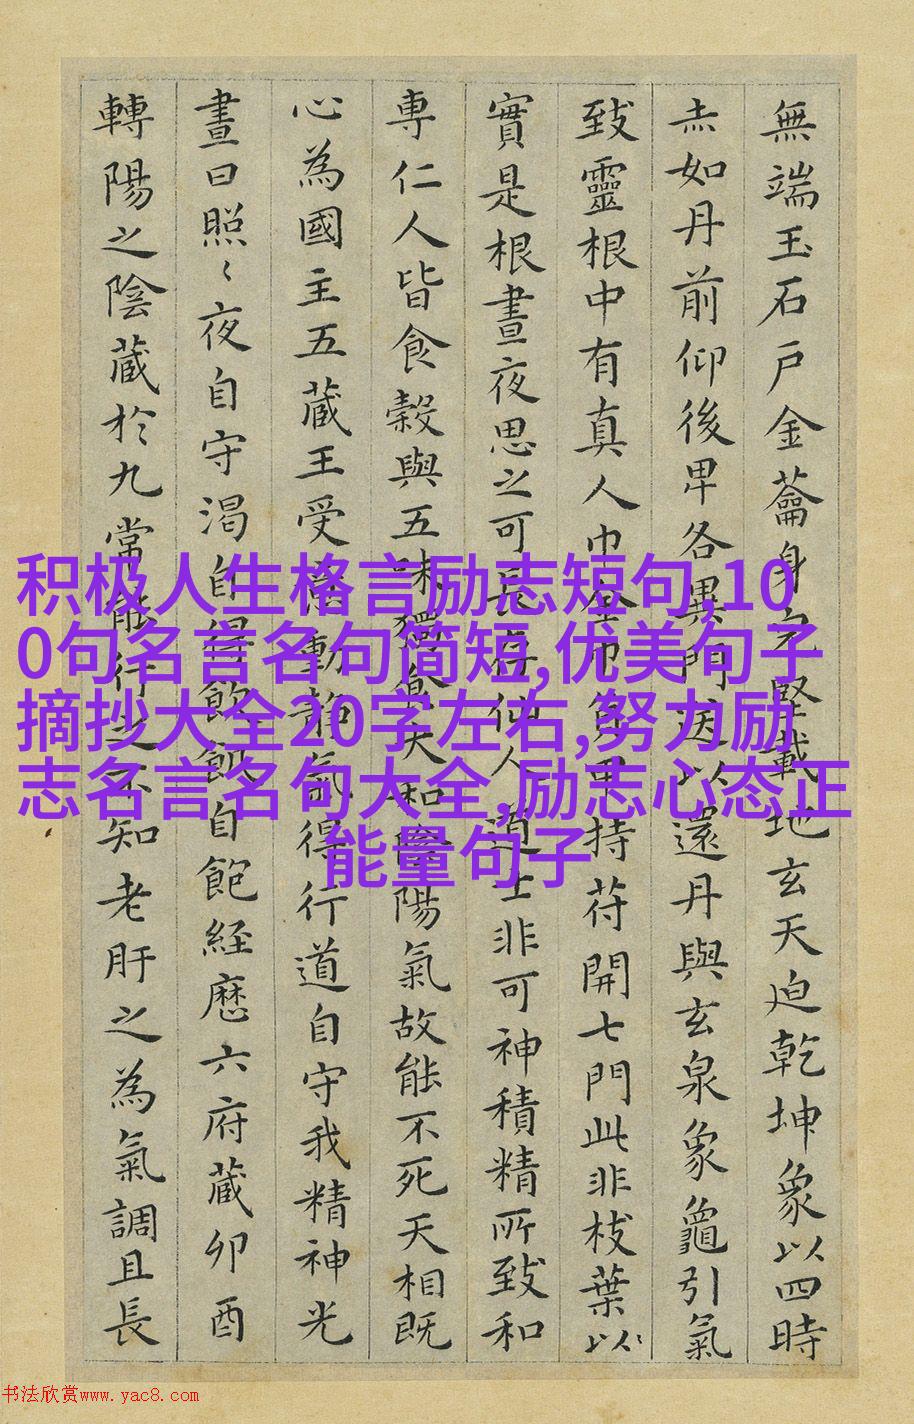 無端玉石戶金蘥身堅載地玄天迫乾坤象以四時
赤如丹前仰後卑各異門送以還丹與玄泉象龜引氣
致靈根中有真人巾金巾負甲持苻開七門此非枝葉以
實是根晝夜思之可長存仙人道士非可神積精所致和
專仁人皆食穀與五味獨食大和陰陽氣故能不死天相既
心為國主五藏王受意動靜氣得行道自守我精神光
晝日照〻夜自守渴自得飲飢自飽經歷六府藏卯酉
轉陽之陰藏於九常能行之不知老肝之為氣調且長
积极人生格言励志短句,10
0句名言名句简短,优美句子
摘抄大全20字左右,努力励
志名言名句大全,励志心态正
能量句子
书法欣赏www.yac8.com